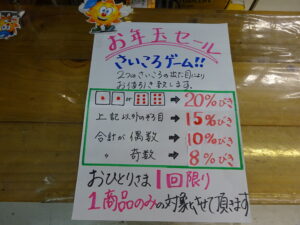 お年玉セール
さいころゲーム!!
2つのさいころの出た目により
お値引き致します。
or → 20%びき
上記以外のゾロ目 → 15%びき
合計が偶数 → 10%びき
〃 奇数 → 8%びき
おひとりさま1回限り
1商品のみの対象とさせて頂きます